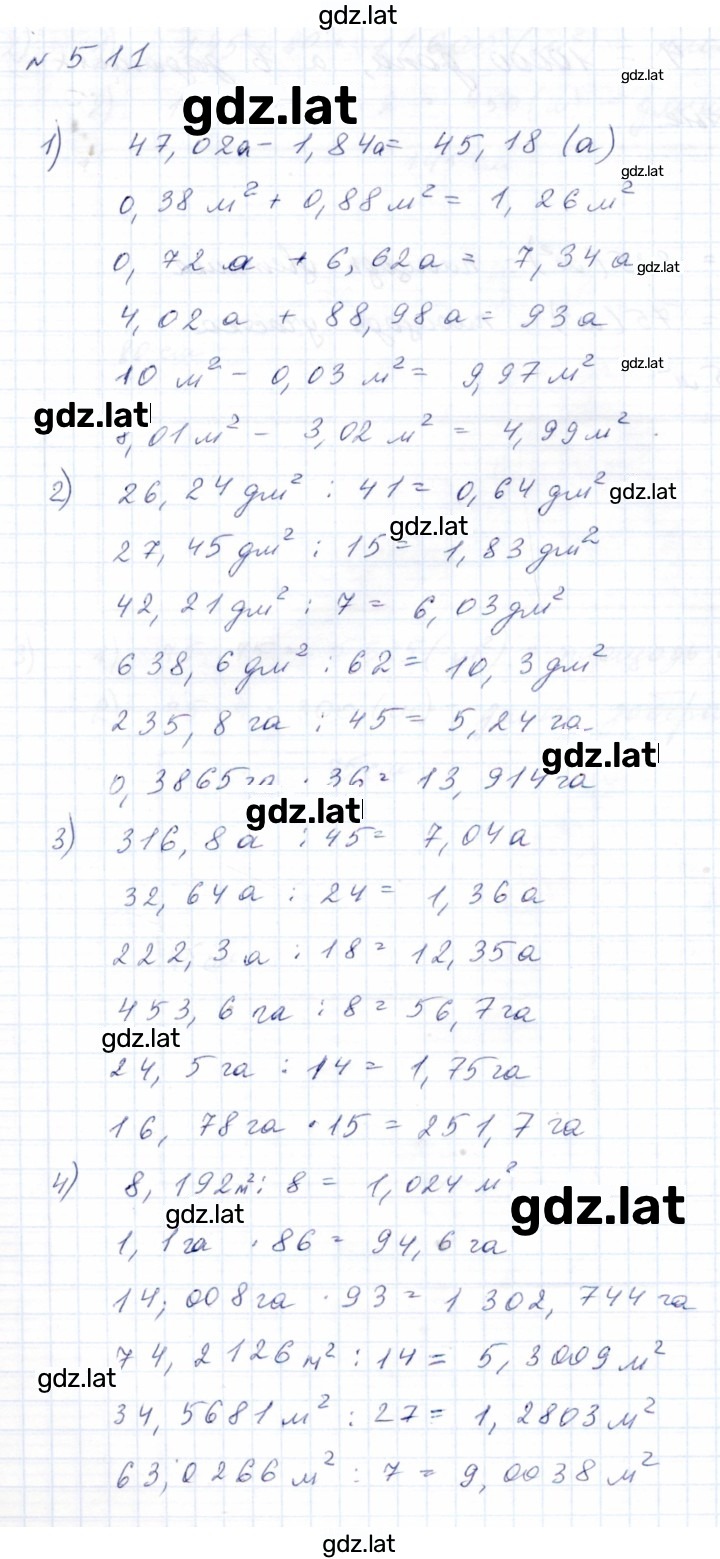 gdz.lat
№ 511
gdz.lat
gdz.lat
1) 47,02а - 1,84а = 45,18 (а)
gdz.lat
0,38 м² + 0,88 м² = 1,26 м²
0,72 а + 6,62а = 7,34 а
gdz.lat
4,02 а + 88,98 а = 93 а
10 м² - 0,03 м² = 9,97 м²
gdz.lat
gdz.lat
,01 м² - 3,02 м² = 4,99 м².
2) 26,24 дм² : 41 = 0,64 дм²
gdz.lat
gdz.lat
27,45 дм² : 15 = 1,83 дм²
42,21 дм² : 7 = 6,03 дм²
638,6 дм² : 62 = 10,3 дм²
235,8 га : 45 = 5,24 га
gdz.lat
0,3865 га · 36 = 13,914 га
gdz.lat
3) 316,8 а : 45 = 7,04 а
32,64 а : 24 = 1,36 а
222,3 а : 18 = 12,35 а
453,6 га : 8 = 56,7 га
gdz.lat
24,5 га : 14 = 1,75 га
16,78 га · 15 = 251,7 га
4) 8,192 м² : 8 = 1,024 м²
gdz.lat
gdz.lat
1,1 га · 86 = 94,6 га
14,008 га · 93 = 1 302,744 га
74,2126 м² : 14 = 5,3009 м²
gdz.lat
34,5681 м² : 27 = 1,2803 м²
63,0266 м² : 7 = 9,0038 м²
gdz.lat